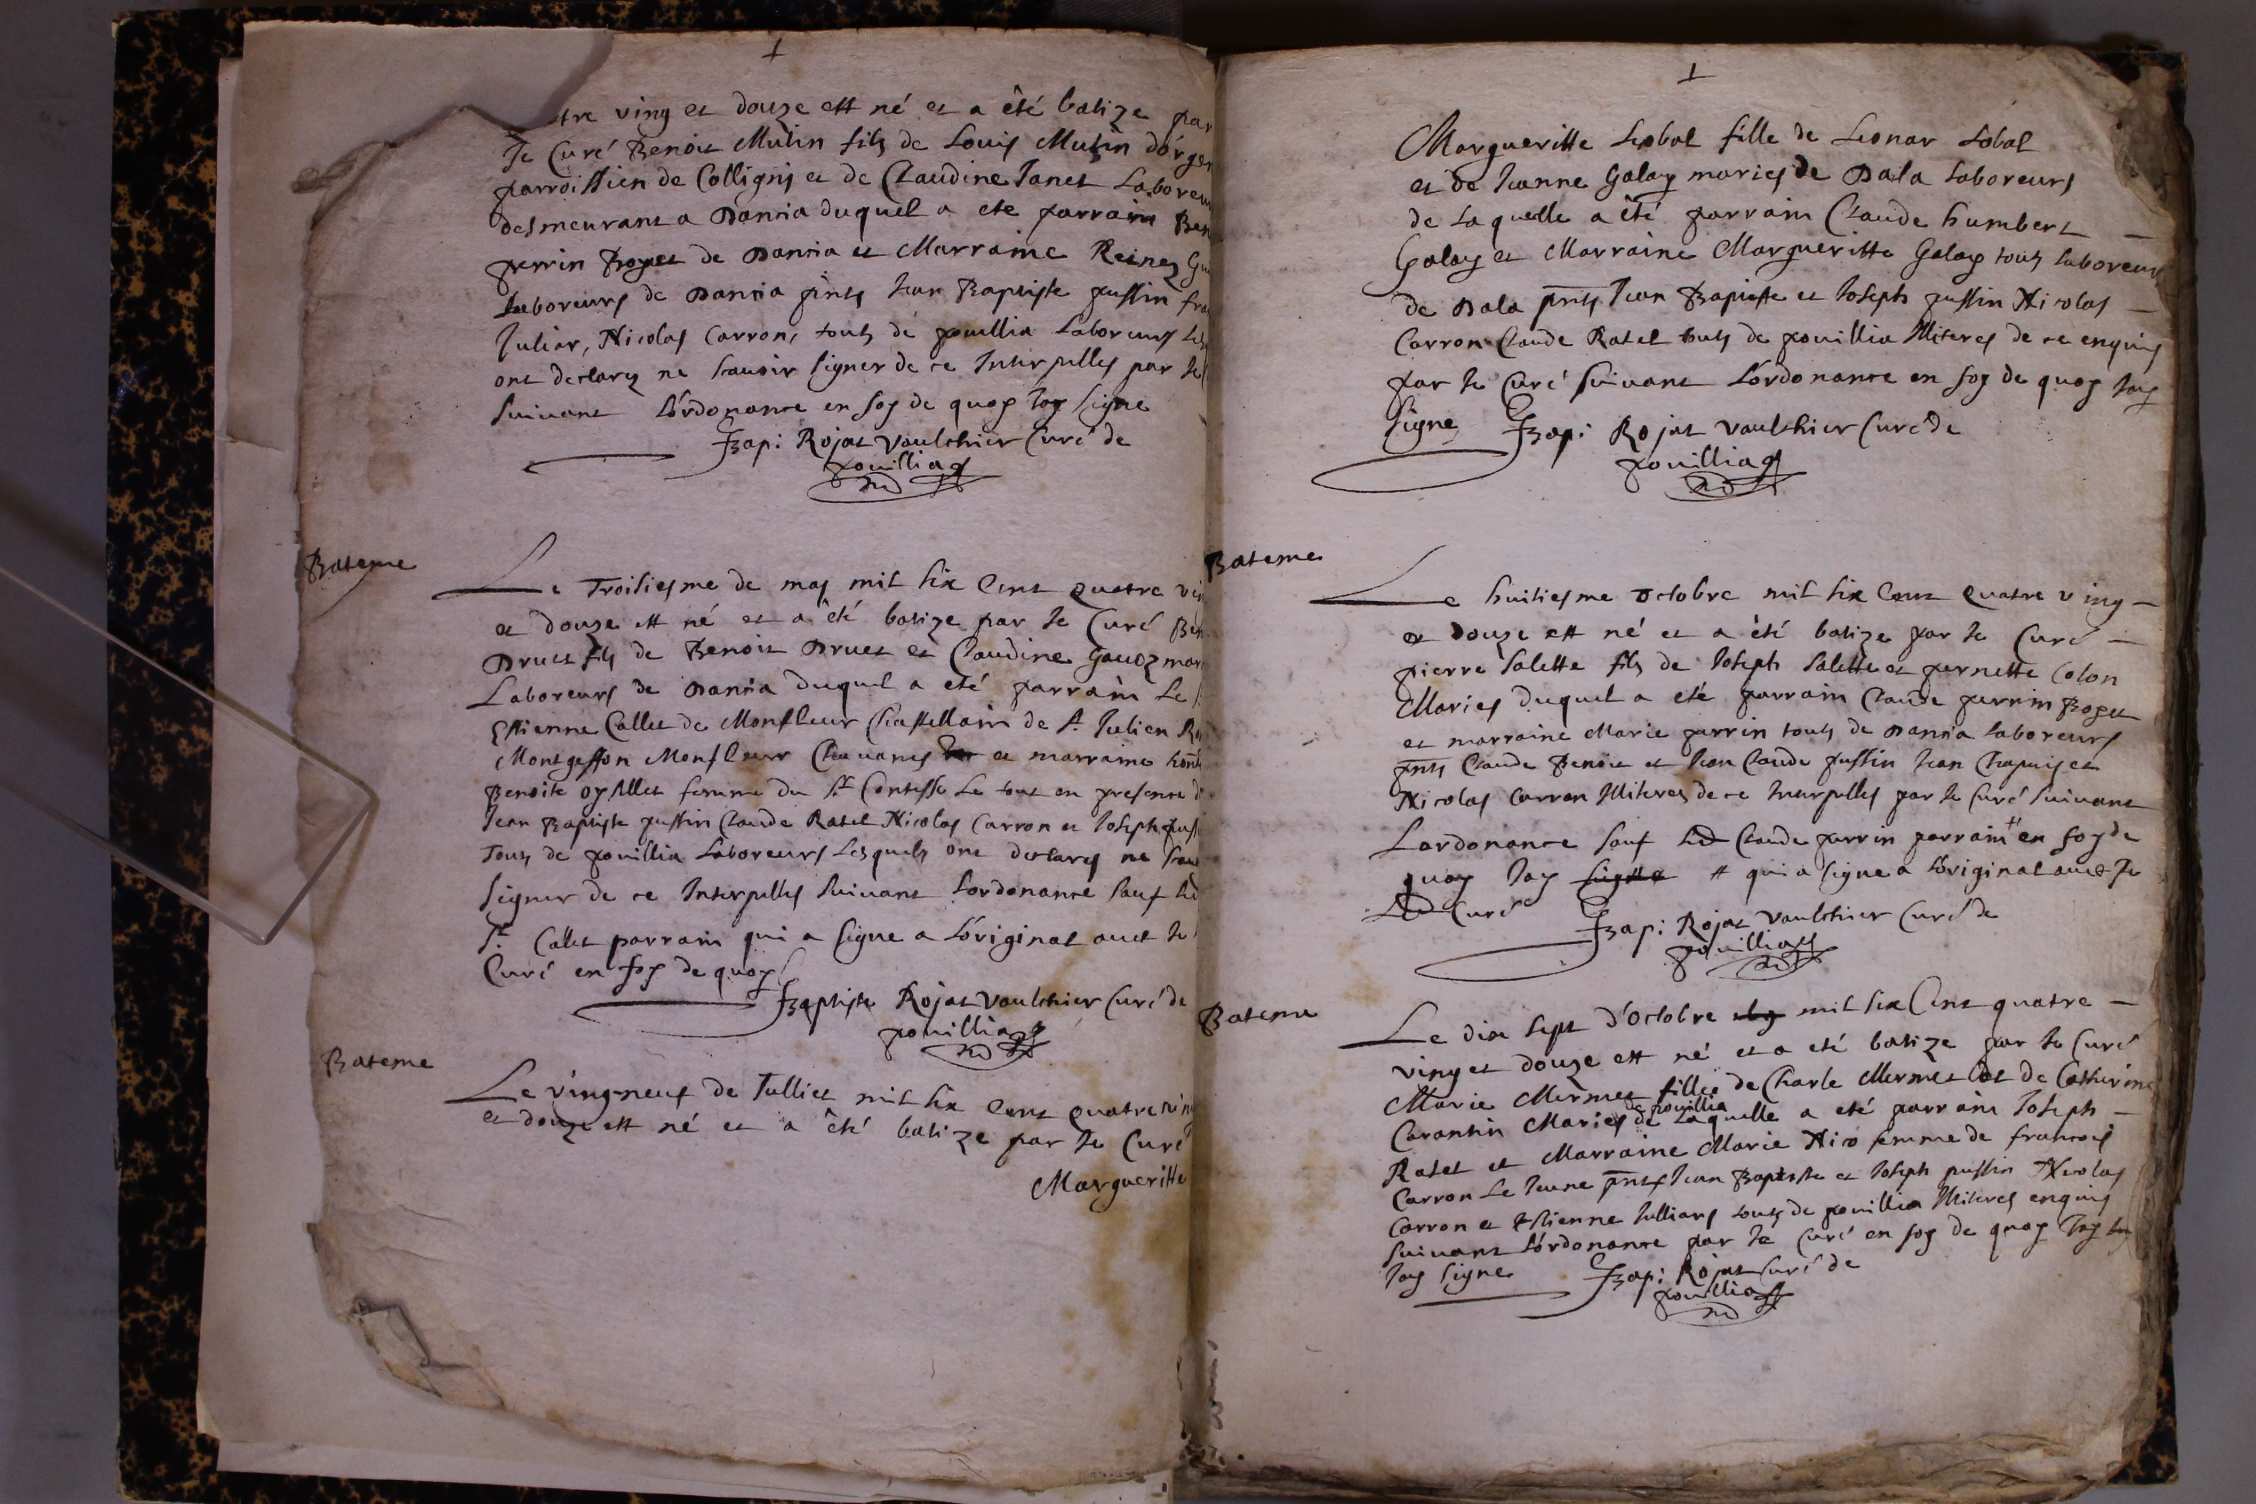 tre ving et douze est né et a êté batize par
Je Curé Benoit Mutin fils de Louis Mutin
parroissien de Colligny et de Claudine Janet
desmeurant a Dancia duquel a ete parrain
perrin Froget de Dancia et Marraine Reinez
Laboreurs de Dancia pnts Jean Baptiste pussin
Juliar, Nicolas Carron, touts de pouillia Laboreurs
ont declarez ne scauoir signer de ce Interpelles par Je
suiuant L'ordonance en foy de quoy Jay signe
Bapi: Rojat Vaulchier Curé de
pouillia
Bateme
Le Troisiesme de may mil six Cent quatre
et douze est né et a êté batize par Je Curé
Druet fils de Benoit Druet et Claudine
Laboreurs de Dancia duquel a eté parrain Le
Estienne Callet de Monfleur Chastellain de St Julien
Montgeffon Monfleur Chauanes et marraine
Benoite femme du Sr Le tout en presence
Jean Baptiste pussin Claude Ratel Nicolas Carron et Joseph
Touts de pouillia Laboreurs Lesquels ont declares ne
signer de ce Interpelles suiuant Lordonance sauf
Sr Callet parrain qui a signe a L'original auec Je
Curé en foy de quoy
Baptiste Rojat Vaulchier Curé de
pouillia
Bateme
Le vingneuf de Julliet mil six Cent quatre
et douze est né et a êté batize par Je Curé
Margueritte
Margueritte Lobal fille de Leonar Lobal
et de Jeanne Galay maries de Dala Laboreurs
de Laquelle a êté parrain Claude humbert
Galay et Marraine Margueritte Galay touts Laboreurs
de Dala pnts Jean Baptiste et Joseph pussin Nicolas
Carron Claude Ratel touts de pouillia Illiteres de ce enquis
par Je Curé suiuant Lordonance en foy de quoy Jay
signe Bapi: Rojat Vaulchier Curé de
pouillia
Bateme
Le huitiesme octobre mil six Cent quatre ving
et douze est né et a êté batize par Je Curé
pierre Salette fils de Joseph Salette et pernette Colon
Maries duquel a eté parrain Claude perrin Froget
et marraine Marie perrin touts de Dancia Laboreurs
pnts Claude Benoit et Jean Claude pussin Jean Chapuis et
Nicolas Carron Illiteres de ce Interpelles par Je Curé suiuant
Lordonance sauf Led Claude perrin parrain # en foy de
quoy Jay signe # qui a signe a L'original auec Je
Led Curé Bapi: Rojat Vaulchier Curé de
pouillia
Bateme
Le dix sept d'Octobre mil six Cent quatre
ving et douze est né et a eté batize par Je Curé
Marie Mermet fille de Charle Mermet et de Catherine
de pouillia
Carantin Maries de Laquelle a eté parrain Joseph
Ratel et Marraine Marie Nico femme de francois
Carron Le Jeune pnts Jean Baptiste et Joseph pussin Nicolas
Carron et Estienne Julliars touts de pouillia Illiteres enquis
suiuant L'ordonance par Je Curé en foy de quoy Jay
Jay signe Bapi: Rojat Curé de
pouillia